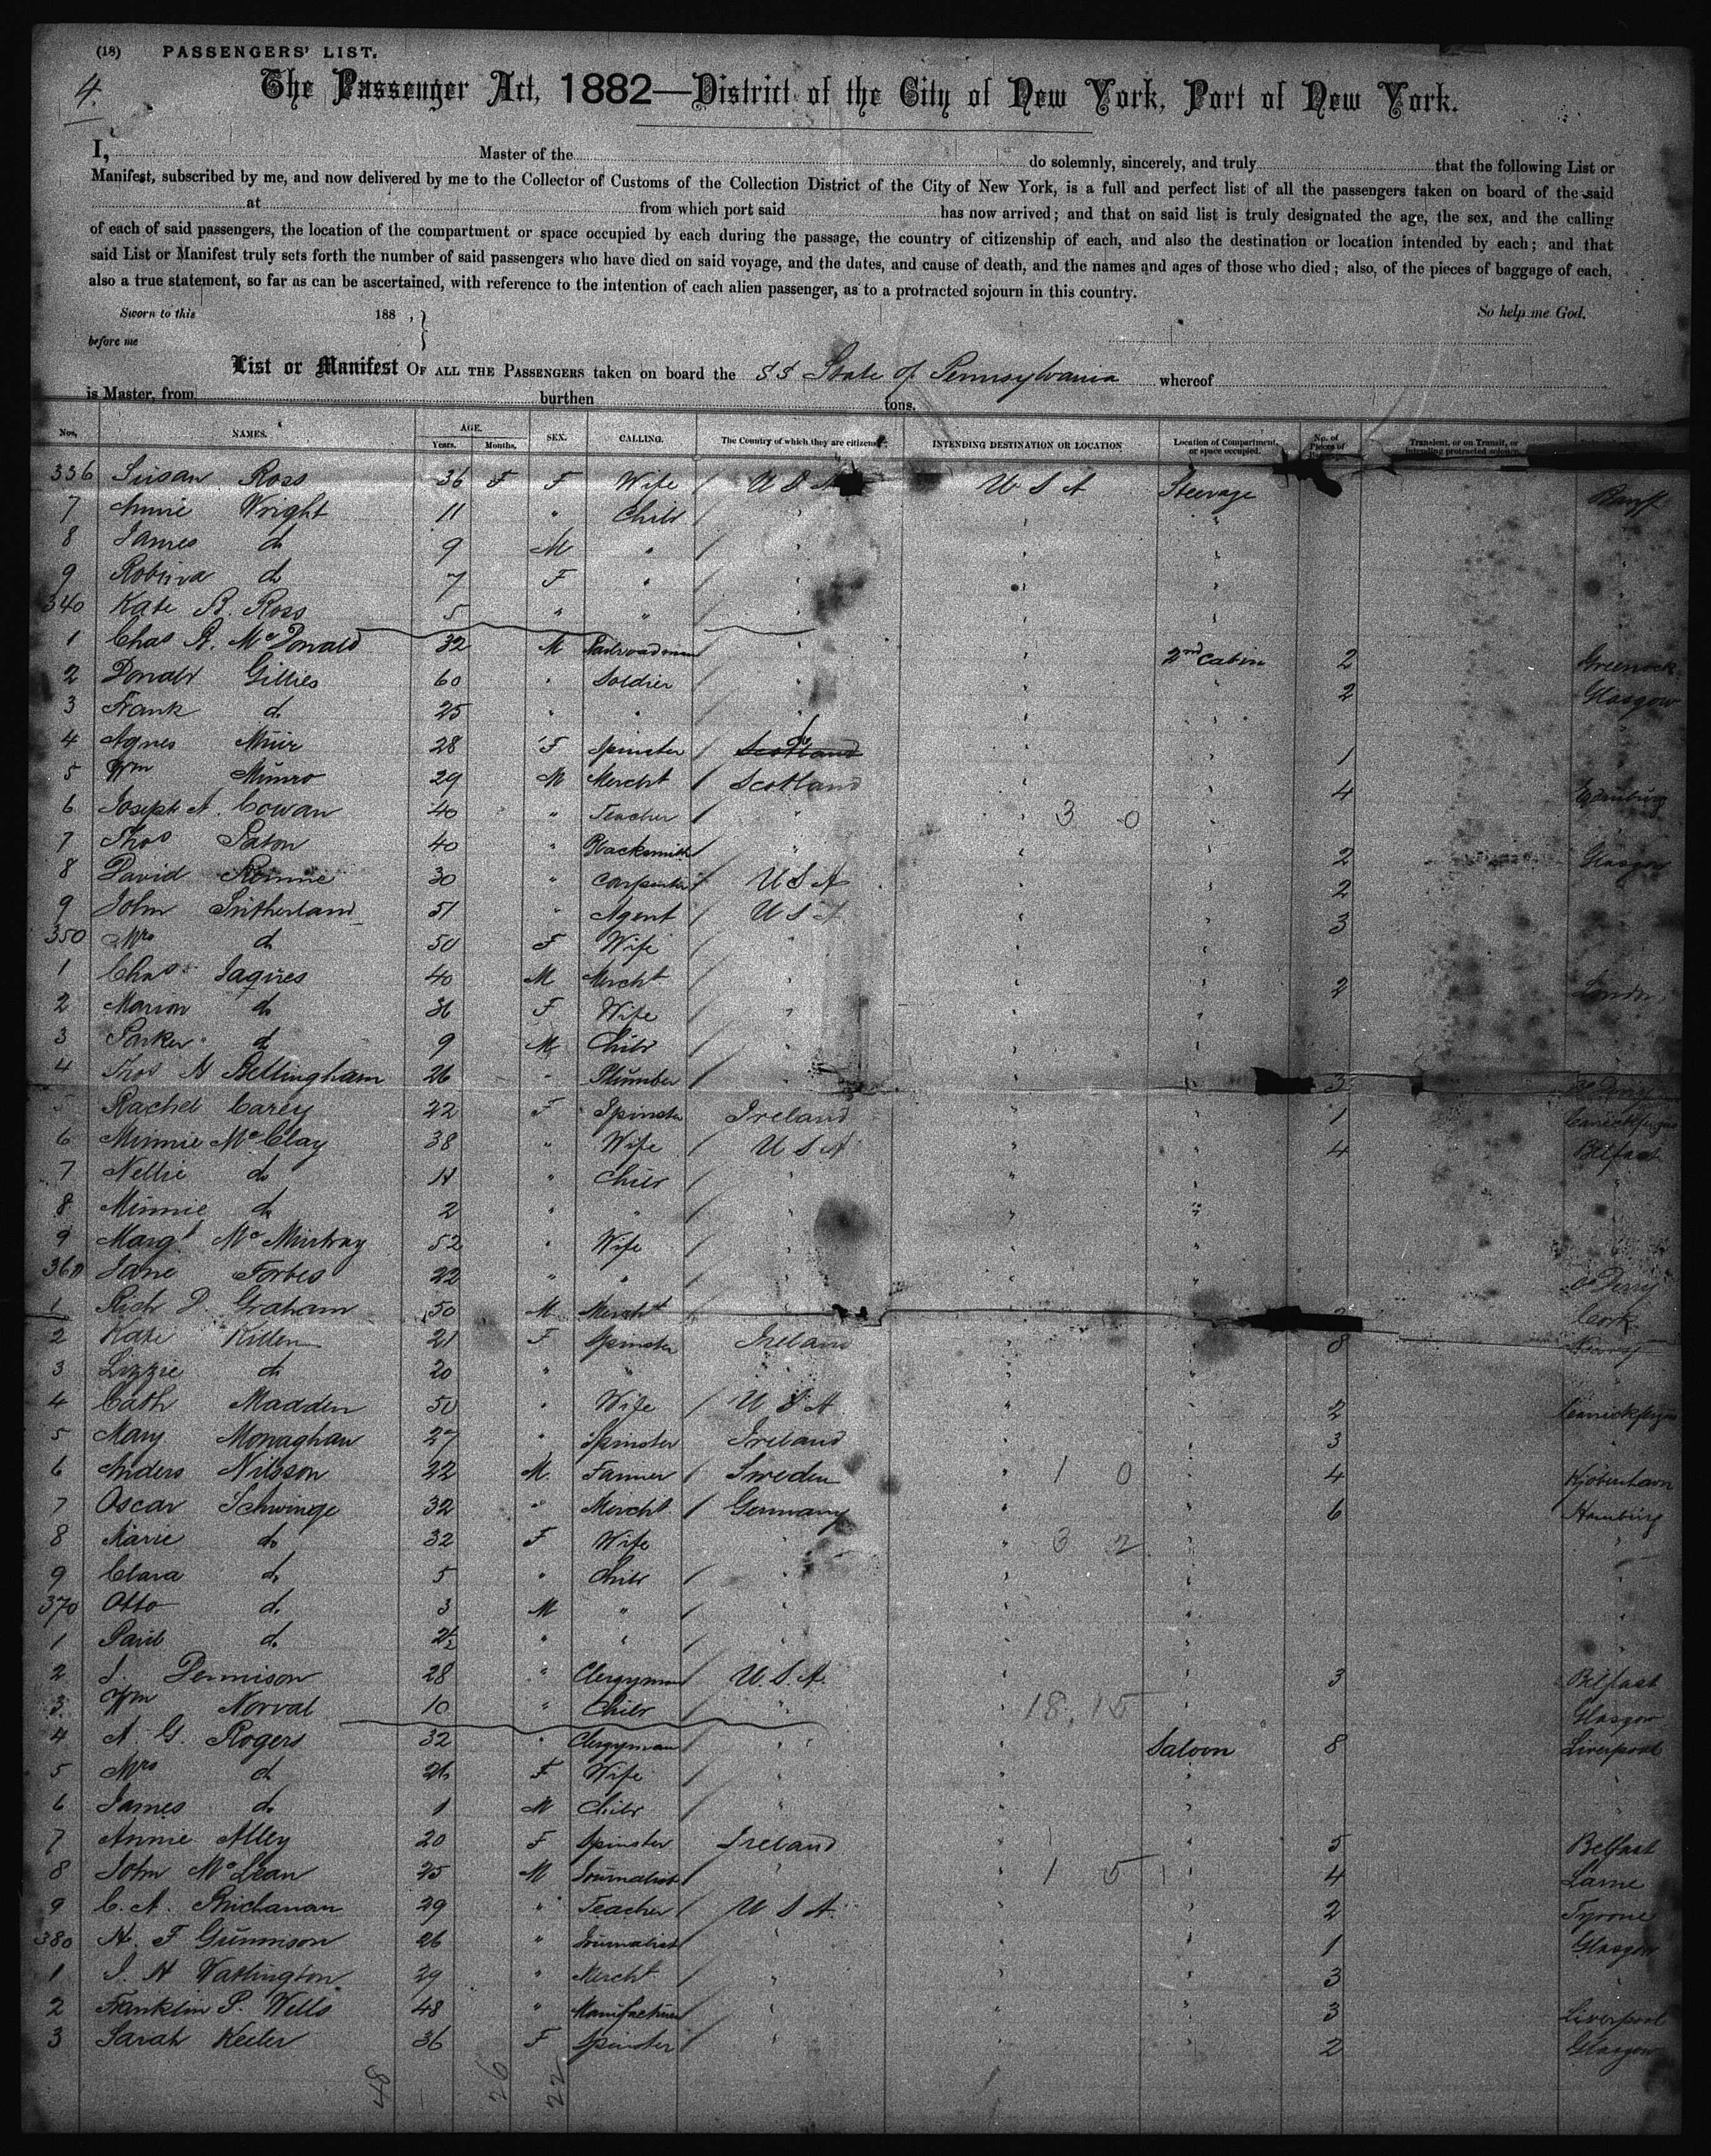 (18) PASSENGERS' LIST.
4.
The Passenger Act, 1882—District of the City of New York, Port of New York.
I, Master of the do solemnly, sincerely, and truly that the following List or
Manifest, subscribed by me, and now delivered by me to the Collector of Customs of the Collection District of the City of New York, is a full and perfect list of all the passengers taken on board of the said
at from which port said has now arrived; and that on said list is truly designated the age, the sex, and the calling
of each of said passengers, the location of the compartment or space occupied by each during the passage, the country of citizenship of each, and also the destination or location intended by each; and that
said List or Manifest truly sets forth the number of said passengers who have died on said voyage, and the dates, and cause of death, and the names and ages of those who died; also, of the pieces of baggage of each,
also a true statement, so far as can be ascertained, with reference to the intention of each alien passenger, as to a protracted sojourn in this country.
Sworn to this 188 , } So help me God.
before me
List or Manifest OF ALL THE PASSENGERS taken on board the SS State of Pennsylvania whereof
is Master, from burthen tons.
Nos. NAMES. AGE. Years. Months. SEX. CALLING. The Country of which they are citizens. INTENDING DESTINATION OR LOCATION Location of Compartment, or space occupied. No. of Pieces of Transient, or on Transit, or Intending protracted sojourn.
336 Susan Ross 36 F F Wife / U S A U S A Steerage Banff
7 Annie Wright 11 " Child /
8 James do 9 M " /
9 Robina do 7 F " /
340 Kate B. Ross 5 " "
1 Chas A. McDonald 32 M Railroadman 2nd Cabin 2 Greenock
2 Donald Gillies 60 " Soldier / 2 Glasgow
3 Frank do 25 " " /
4 Agnes Muir 28 F Spinster / Scotland 1
5 Wm Munro 29 M Mercht / Scotland 4 Edinburg
6 Joseph A. Cowan 40 " Teacher / 3 0
7 Thos Paton 40 " Blacksmith / 2 Glasgow
8 David Rennie 30 " Carpenter / U S A 2
9 John Sutherland 51 " Agent / U S A 3
350 Mrs do 50 F Wife /
1 Chas Jaques 40 M Mercht / 2 London
2 Marion do 36 F Wife /
3 Parker do 9 M Child /
4 Thos H Bellingham 26 " Plumber / 3 Co Derry
5 Rachel Carey 22 F Spinster Ireland 1 Carrickfergus
6 Minnie McClay 38 " Wife / U S A 4 Belfast
7 Nellie do 11 " Child /
8 Minnie do 2 " " /
9 Margt McMurtray 52 " Wife /
360 Jane Forbes 22 " " / Co Derry
1 Rich D. Graham 50 M Mercht Cork
2 Kate Killen 21 F Spinster Ireland 8
3 Lizzie do 20 " "
4 Cath Madden 50 " Wife / U S A 2 Carrickfergus
5 Mary Monaghan 27 " Spinster Ireland 3
6 Anders Nilsson 22 M Farmer / Sweden 1 0 4 Kjobenhavn
7 Oscar Schwinge 32 " Mercht / Germany 6 Hamburg
8 Marie do 32 F Wife 3 2
9 Clara do 5 " Child /
370 Otto do 3 M " /
1 Paul do 2½ " " /
2 J. Dennison 28 " Clergyman / U.S.A. 3 Belfast
3 Wm Norval 10 " Child / 18.15 Glasgow
4 A. G. Rogers 32 " Clergyman Saloon 8 Liverpool
5 Mrs do 26 F Wife /
6 James do 1 M Child /
7 Annie Alley 20 F Spinster Ireland 5 Belfast
8 John McLean 25 M Journalist 1 5 4 Larne
9 C. A. Buchanan 29 " Teacher / U S A 2 Tyrone
380 H. F Gunnison 26 " Journalist 1 Glasgow
1 J. H Watlington 29 " Mercht / 3
2 Franklin P. Wells 48 " Manufacturer 3 Liverpool
3 Sarah Keeler 36 F Spinster / 2 Glasgow
48 26 22